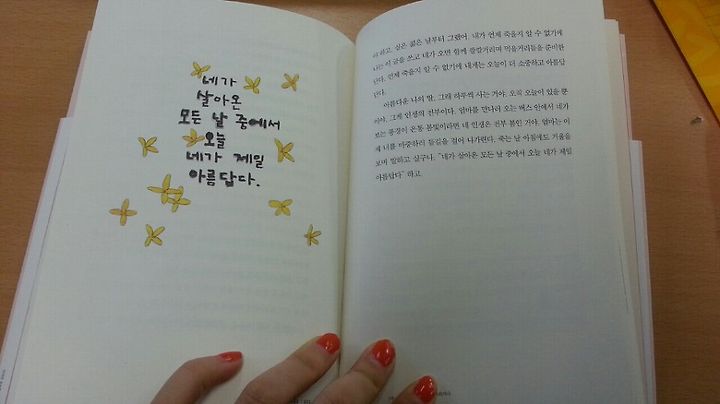 네가
살아온
모든 날 중에서
오늘
네가 제일
아름답다.
야 하고, 실은 젊은 날부터 그랬어. 내가 언제 죽을지 알 수 없기에
나는 이 글을 쓰고 네가 오면 함께 깔깔거리며 먹을거리들을 준비한
단다. 언제 죽을지 알 수 없기에 내게는 오늘이 더 소중하고 아름답
단다.
아름다운 나의 딸, 그래 하루씩 사는 거야. 오직 오늘이 있을 뿐
이야. 그게 인생의 전부이다. 엄마를 만나러 오는 버스 안에서 네가
보는 풍경이 온통 봄빛이라면 네 인생은 전부 봄인 거야. 엄마는 이
제 너를 마중하러 들길을 걸어 나가련다. 죽는 날 아침에도 거울을
보며 말하고 싶구나. "네가 살아온 모든 날 중에서 오늘 네가 제일
아름답다" 하고.